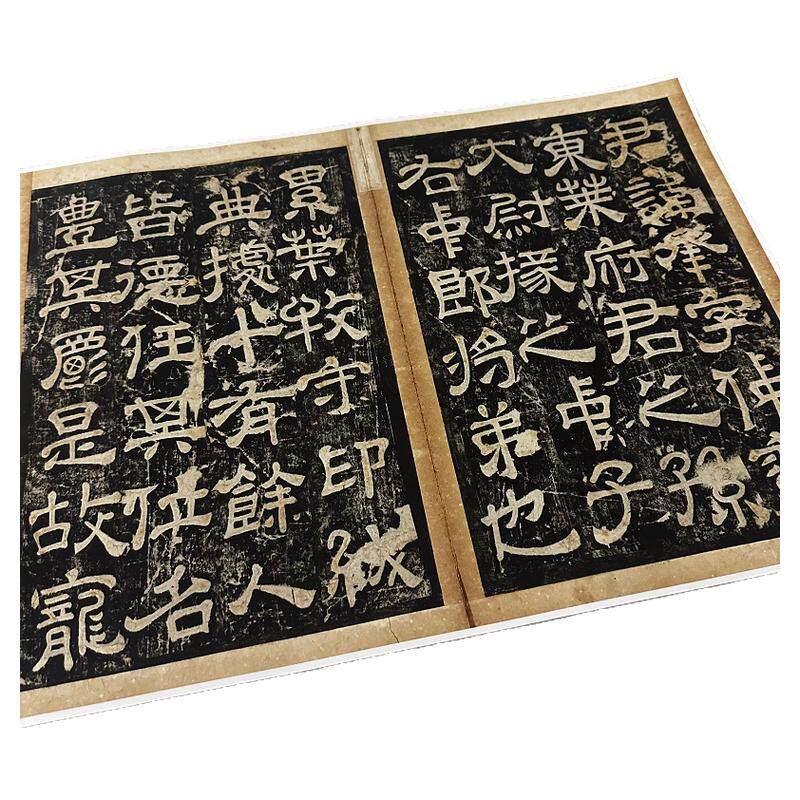 君諱承字仲
東萊府君之孫
大尉掾之中子
右中郎將弟也
累葉牧守印紱
典據十有餘人
皆德任其位名
豐其爵是故寵